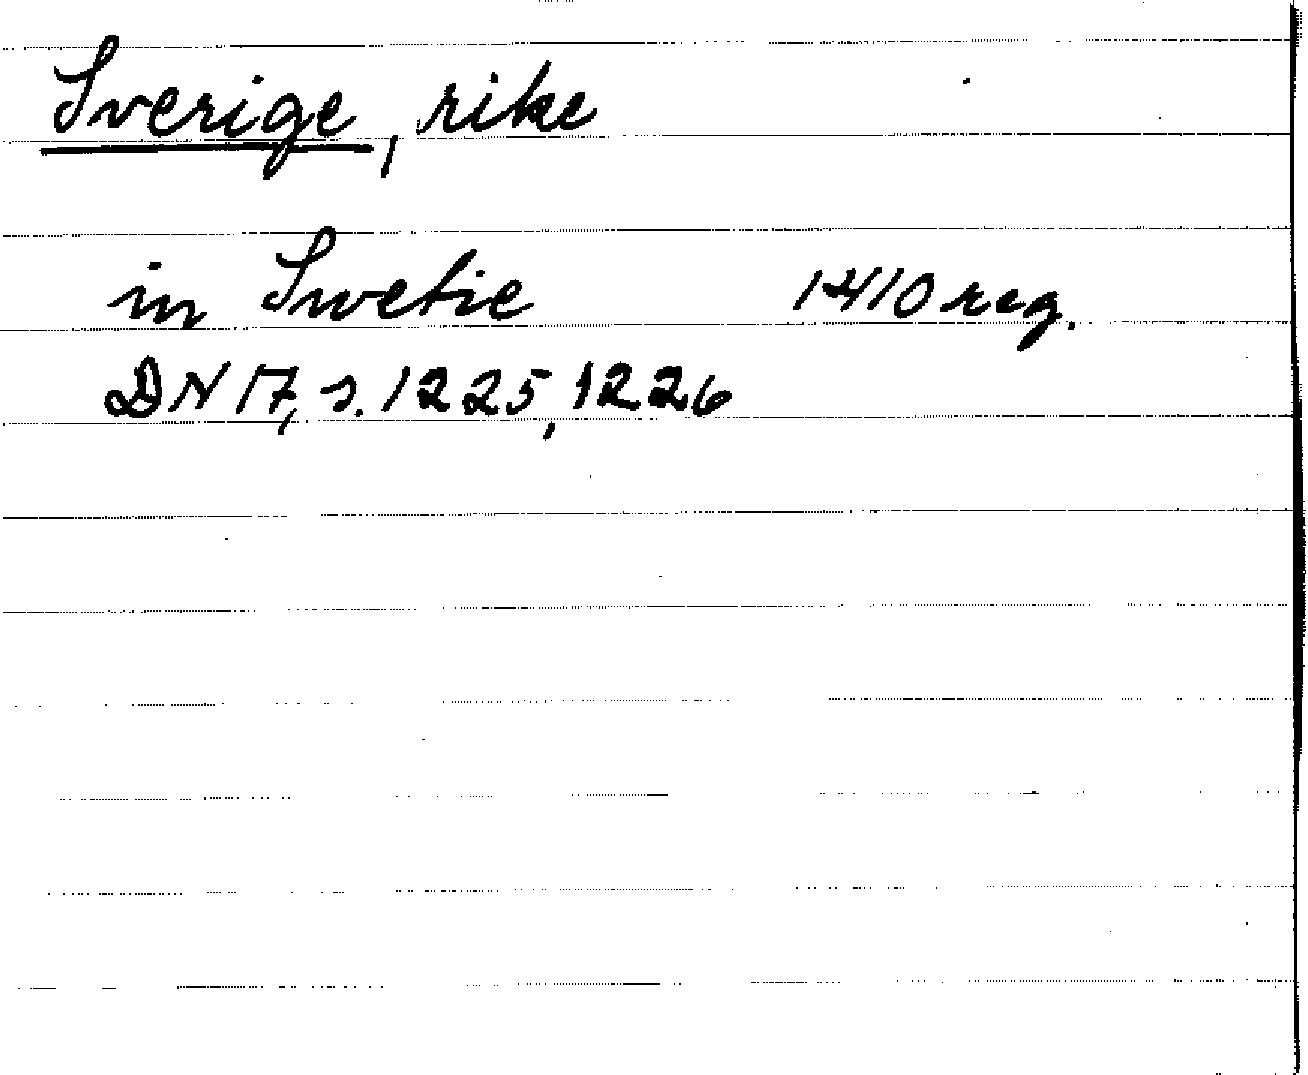 Sverige, rike
in Swetie 1410 reg.
DN 17, s. 1225, 1226